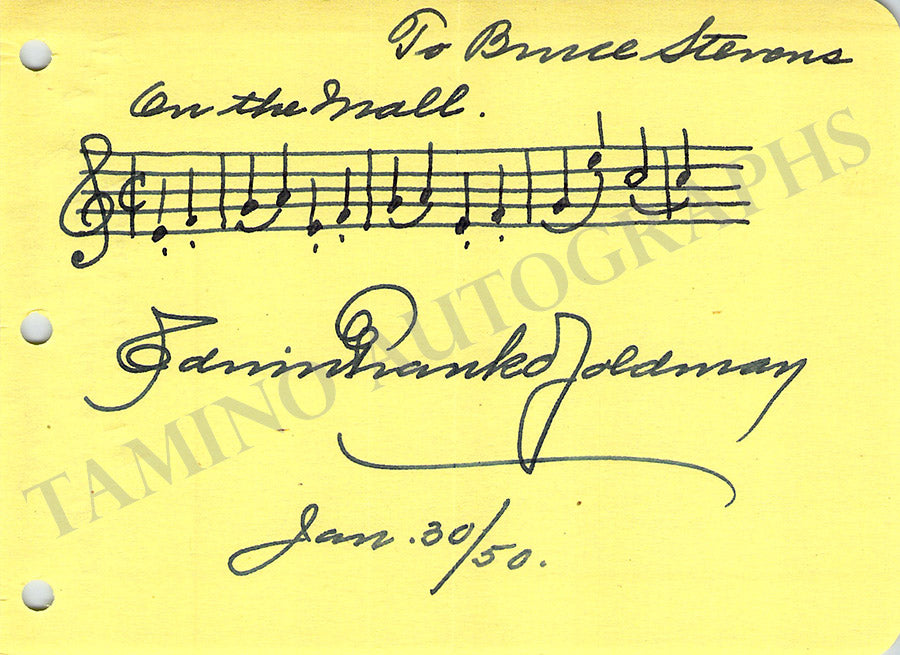 To Bruce Stevens
On the Mall.
Edwin Franko Goldman
Jan. 30/50.
TAMINO AUTOGRAPHS